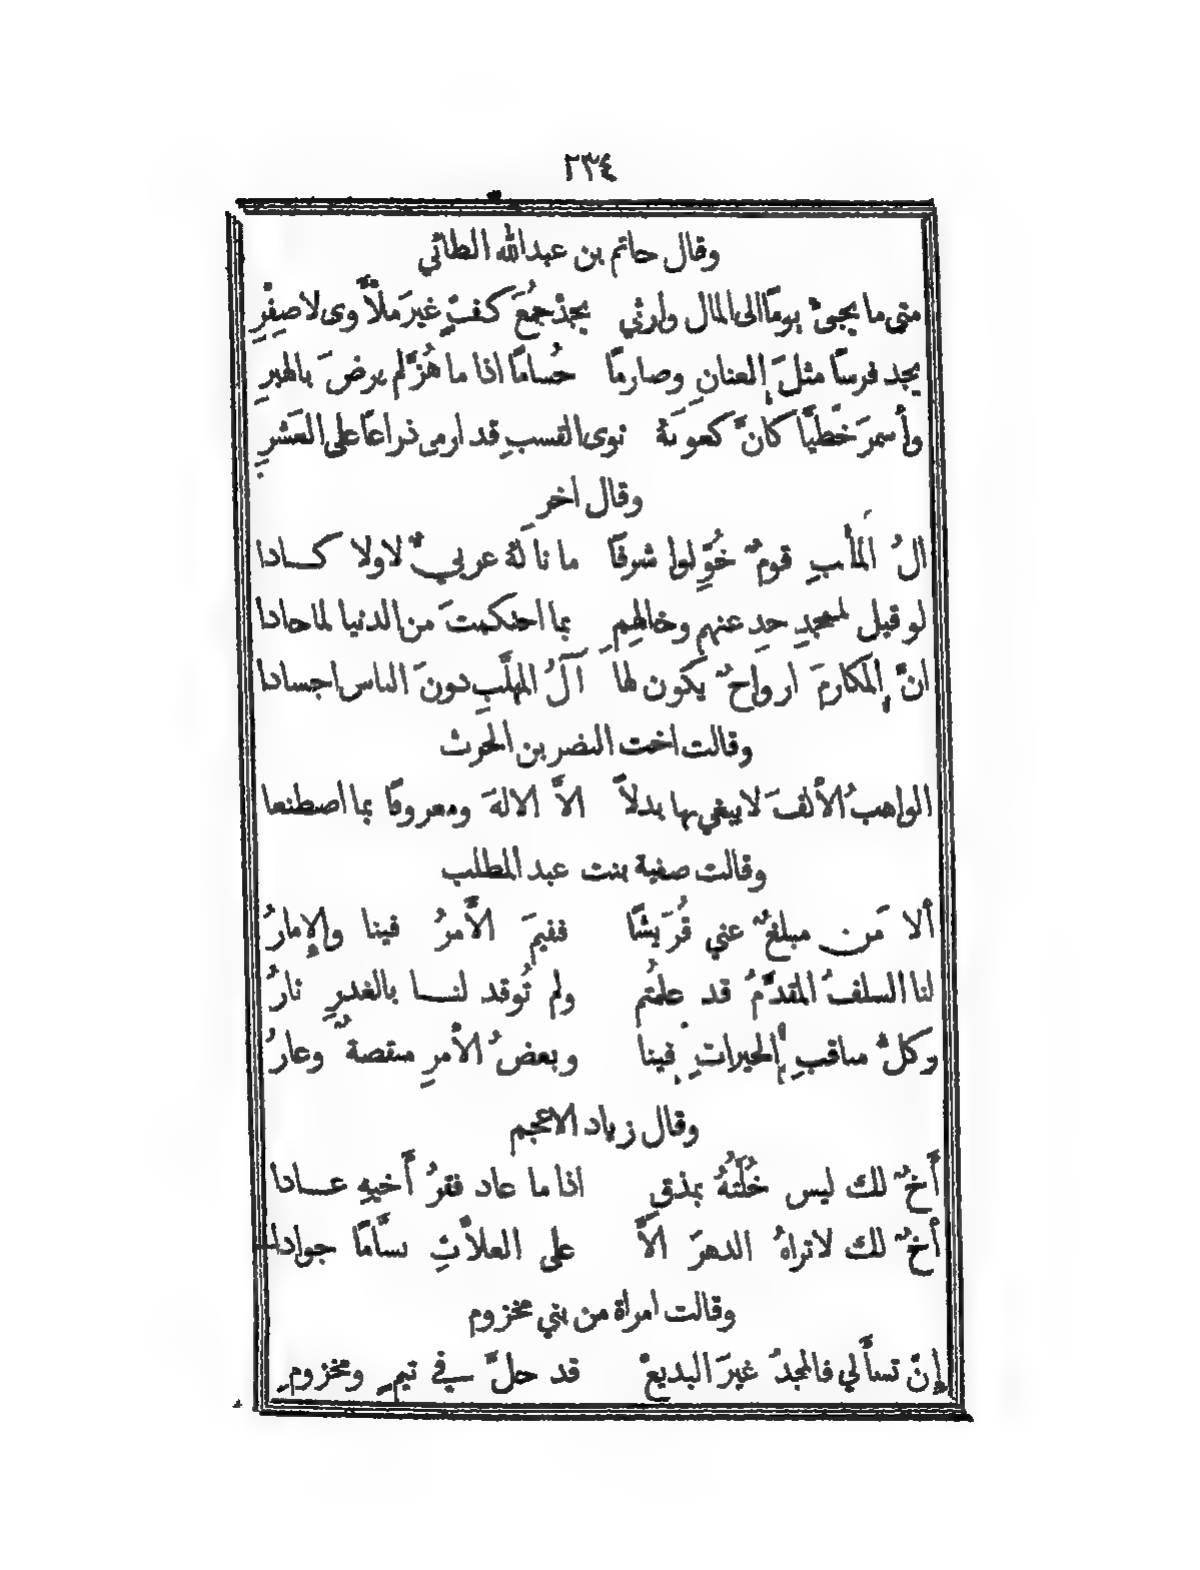 ٢٣٤
وقال حاتم بن عبدالله الطائي
متى ما يجيْ يومًا الى المال وارثي يجدْ جُمعَ كفٍّ غيرَ ملأَّوى لا صِفْرِ
يجد فرسًا مثلَ إلعنانِ وصارمًا حُسامًا اذا ما هُزَّ لم يرضَ بالهبرِ
وأسمرَ خَطيًّا كانَّ كعوبَهُ نوى القسبِ قد ارمى ذراعًا على العَشرِ
وقال اخر
الُ المَلَّبِ قومٌ خُوِّلوا شرفًا ما نالَهُ عربيٌّ لا ولا كــادا
لو قيل للمجدِ حِدِ عنهم وخالهِمِ بما احتكمتَ من الدنيا لما حادا
انَّ إلمكارمَ ارواحٌ يكون لها آلُ المهلَّبِ دونَ الناس اجسادا
وقالت اخت النضر بن الحرث
الواهبُ الأَلفَ لا يبغي بها بدلاً الاَّ الالهَ ومعروفًا بما اصطنعا
وقالت صفية بنت عبد المطلب
ألا مَن مبلغٌ عني قُرَيشًا ففيمَ الأَمرُ فينا والإِمارُ
لنا السلفُ المقدَّمُ قد علمتُم ولم تُوقد لنــا بالغدرِ نارُ
وكلُّ مناقبِ إلخيراتِ فينا وبعضُ الأَمرِ منقصةٌ وعارُ
وقال زياد الاعجم
أَخٌ لك ليس خُلَّتُهُ بمذقٍ اذا ما عاد فقرُ أَخيهِ عــادا
أَخٌ لك لا تراهُ الدهرَ الاَّ على العلاَّتِ بسَّامًا جوادا
وقالت امراة من بني مخزوم
إنْ تسأَلي فالمجدُ غيرَ البديعْ قد حلَّ سيفے تيمٍ ومخزومِ